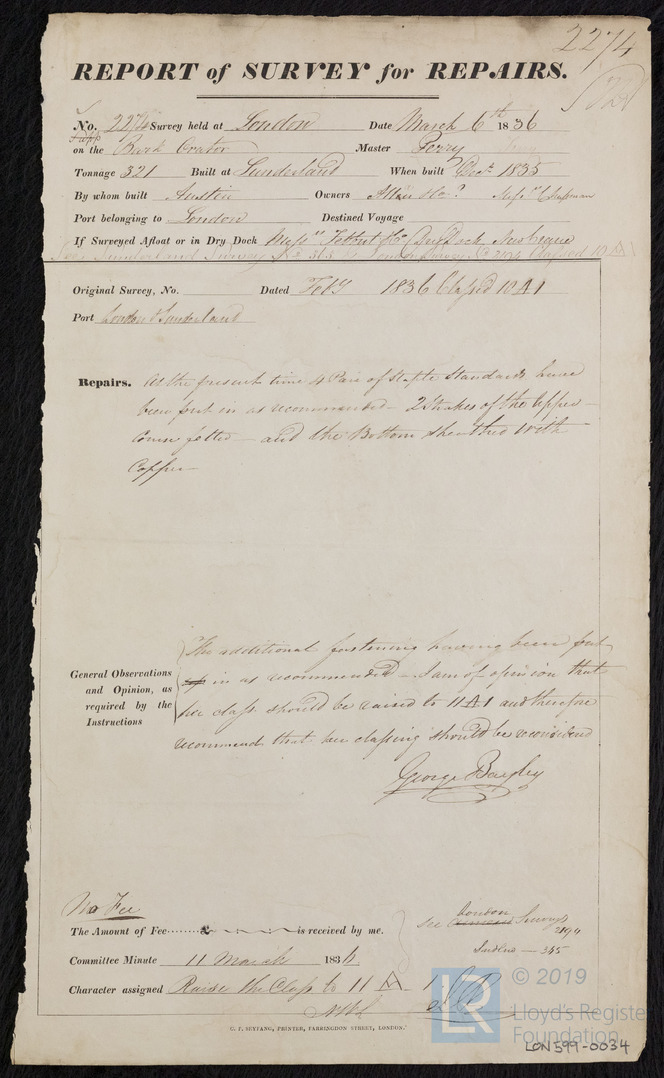 2274
REPORT of SURVEY for REPAIRS.
No. 2274 Survey held at London Date March 6th 1836
on the Bark Crator Master Terry
Tonnage 321 Built at Sunderland When built Decr 1835
By whom built Austin Owners
Port belonging to London Destined Voyage
If Surveyed Afloat or in Dry Dock Messrs Dock,
See Sunderland Survey No Classed 10 A 1
Original Survey, No. Dated Feby 1836 Classed 10 A 1
Port London & Sunderland
Repairs. At the present time 4 Pair of Staple Standards have
been put in as recommended — 2 Strakes of the Upper
felted — and the Bottom sheathed with
Copper
The additional fastening having been put
General Observations and Opinion, as required by the Instructions
in as recommended — I am of opinion that
her class should be raised to 11 A 1 and therefore
recommend that her classing should be reconsidered
George Bayley
No Fee
The Amount of Fee £ is received by me.
see London Surveys
2194
Sundld — 345
Committee Minute 11 March 1836
Character assigned Raise the Class to 11 A 1
C. F. SEYFANG, PRINTER, FARRINGDON STREET, LONDON.
LR
© 2019
Lloyd's Register
Foundation
LON599-0034